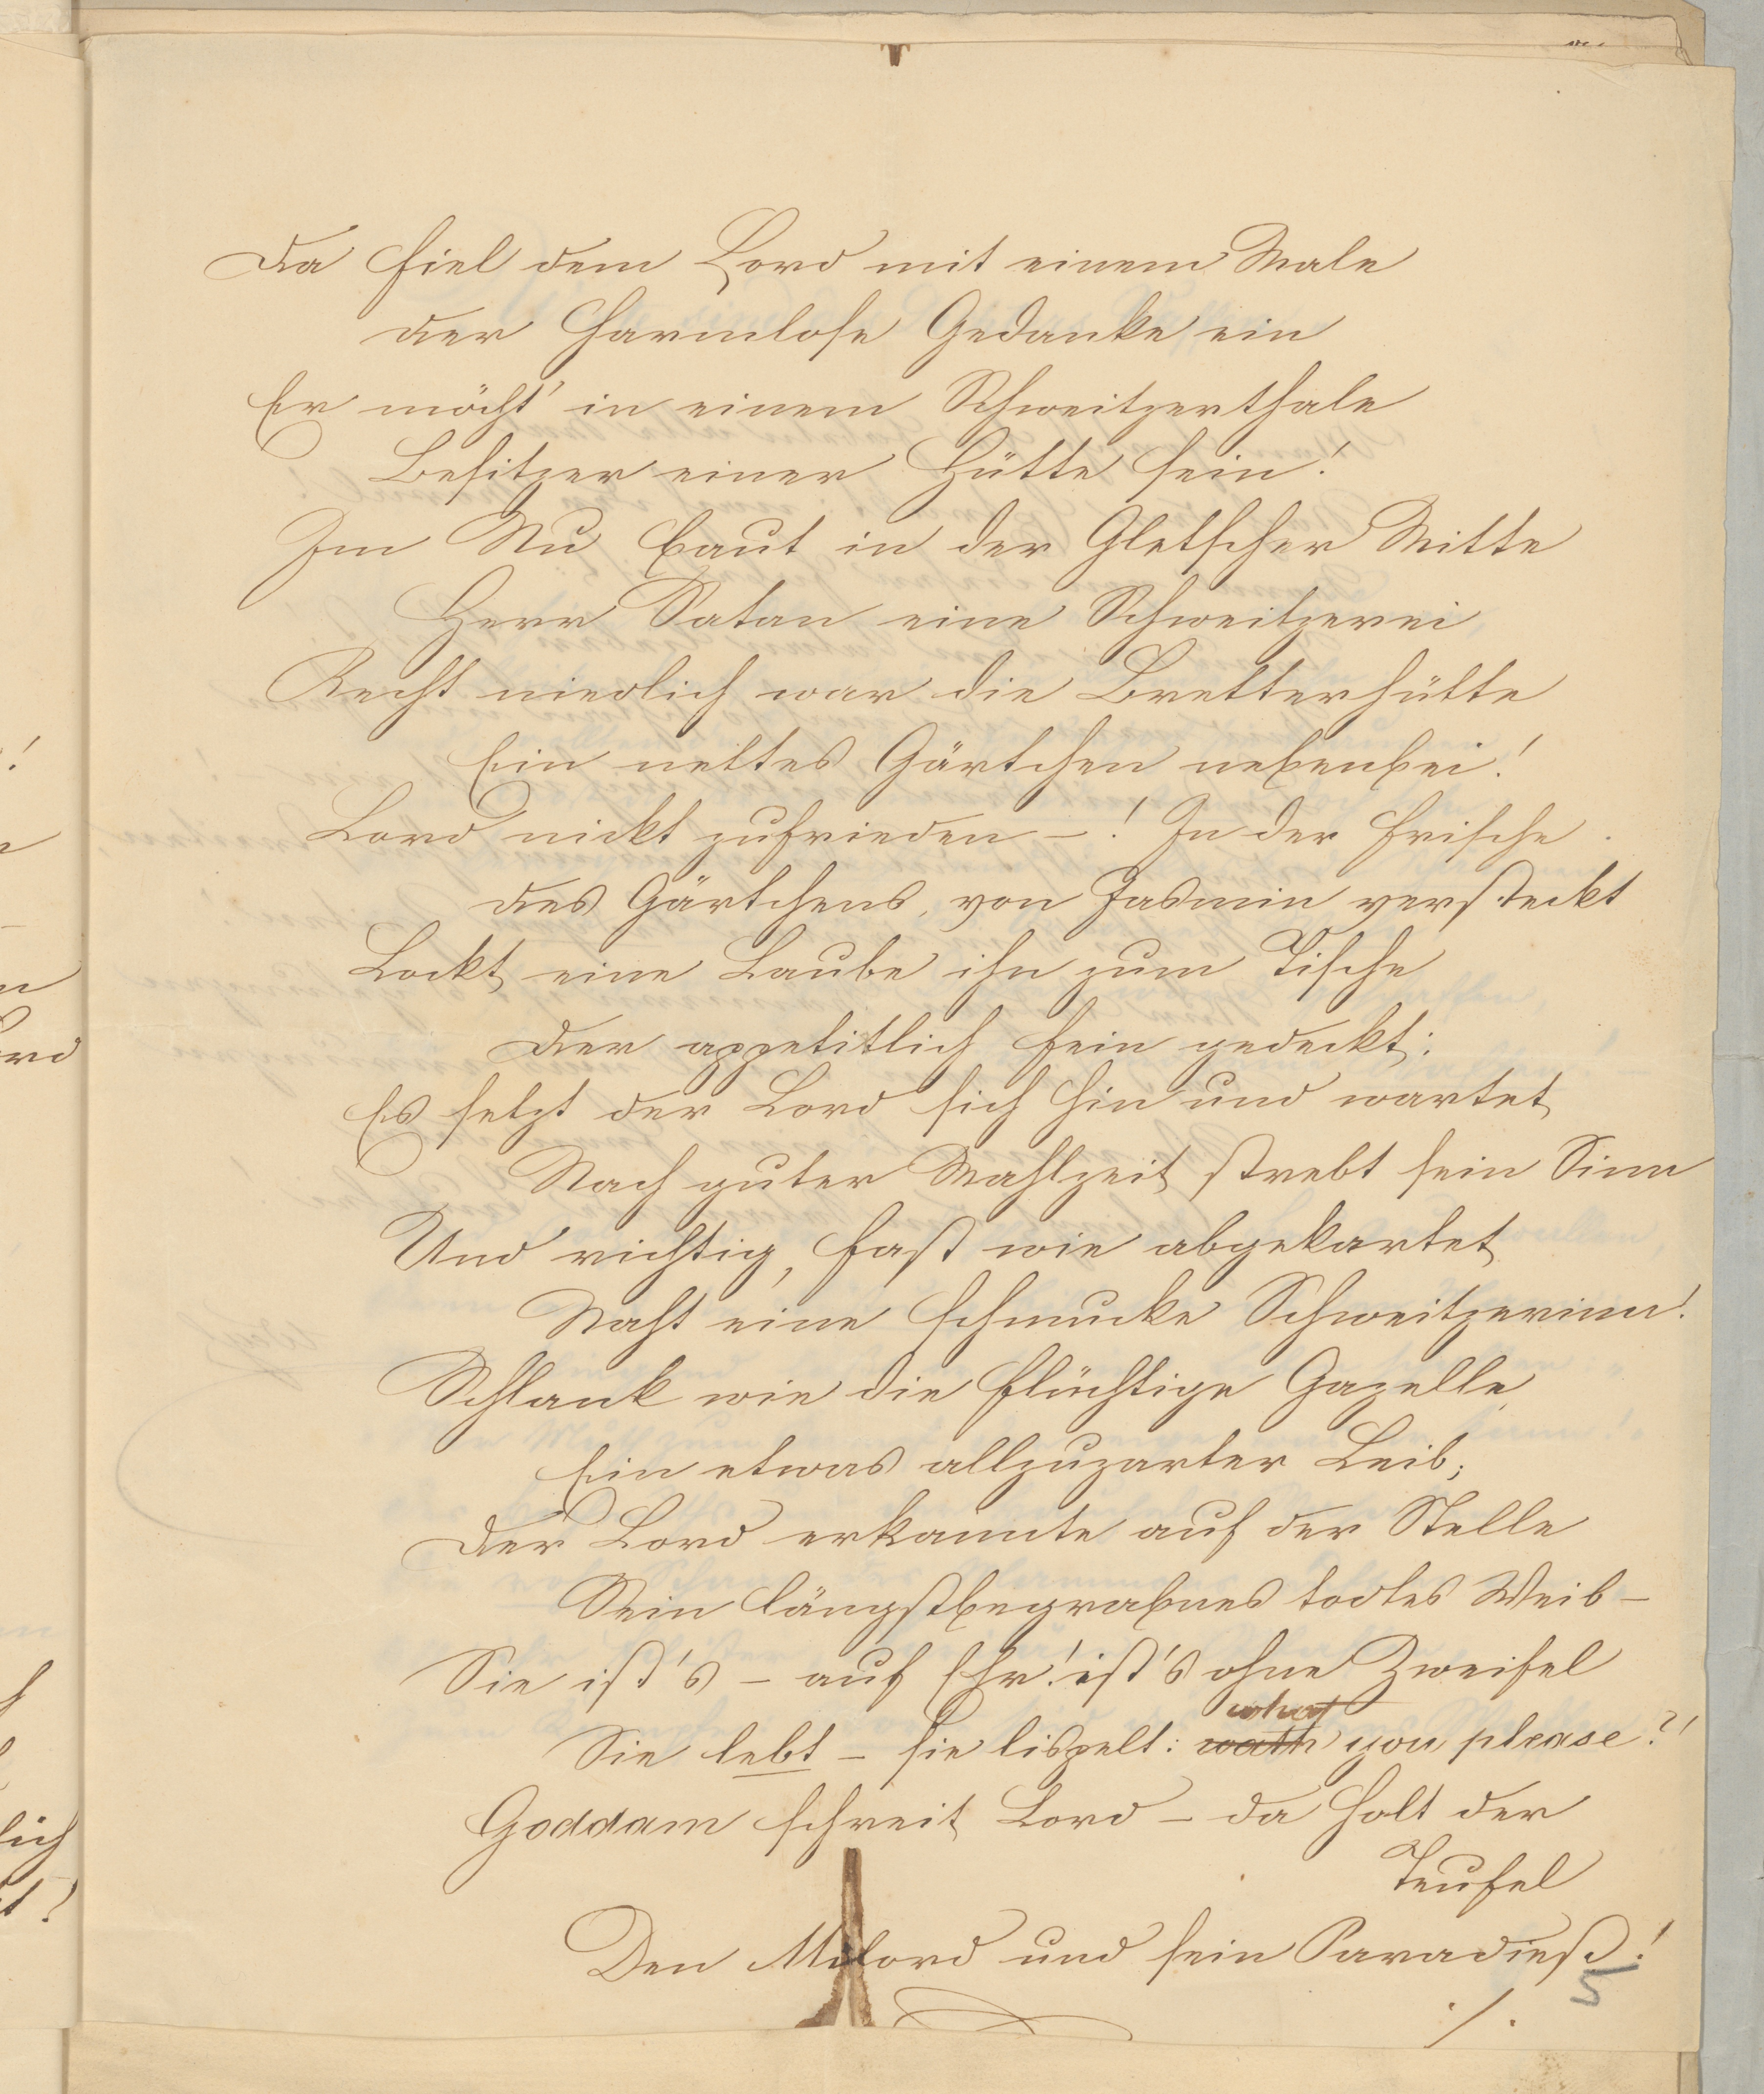 Da fiel dem Lord mit einem Male
der harmlose Gedanke ein
Er möcht' in einem Schweitzerthale
Besitzer einer Hütte sein!
Im Nu baut in der Gletscher Mitte
Herr Satan eine Schweitzerei,
Recht niedlich war die Bretterhütte
Ein nettes Gärtchen nebenbei!
Lord nickt zufrieden –! In der Frische
des Gärtchens, von Jasmin versteckt
Lockt eine Laube ihn zum Tische
Der appetitlich fein gedeckt;
Es setzt der Lord sich hin und wartet
Nach guter Mahlzeit strebt sein Sinn
Und richtig, fast wie abgekartet
Naht eine schmucke Schweitzerinn!
Schlank wie die flüchtige Gazelle,
Ein etwas allzuzarter Leib;
Der Lord erkannte auf der Stelle
Sein längstbegrabnes todtes Weib –
Sie ist's – auf Ehr'! ist's ohne Zweifel
what
Sie lebt – sie lispelt: wath you please?!
Goddam schreit Lord – da holt der
Teufel
Den Mylord und sein Paradieß!
./.
5